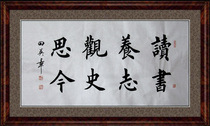 讀書
養志
觀史
思今
田英章